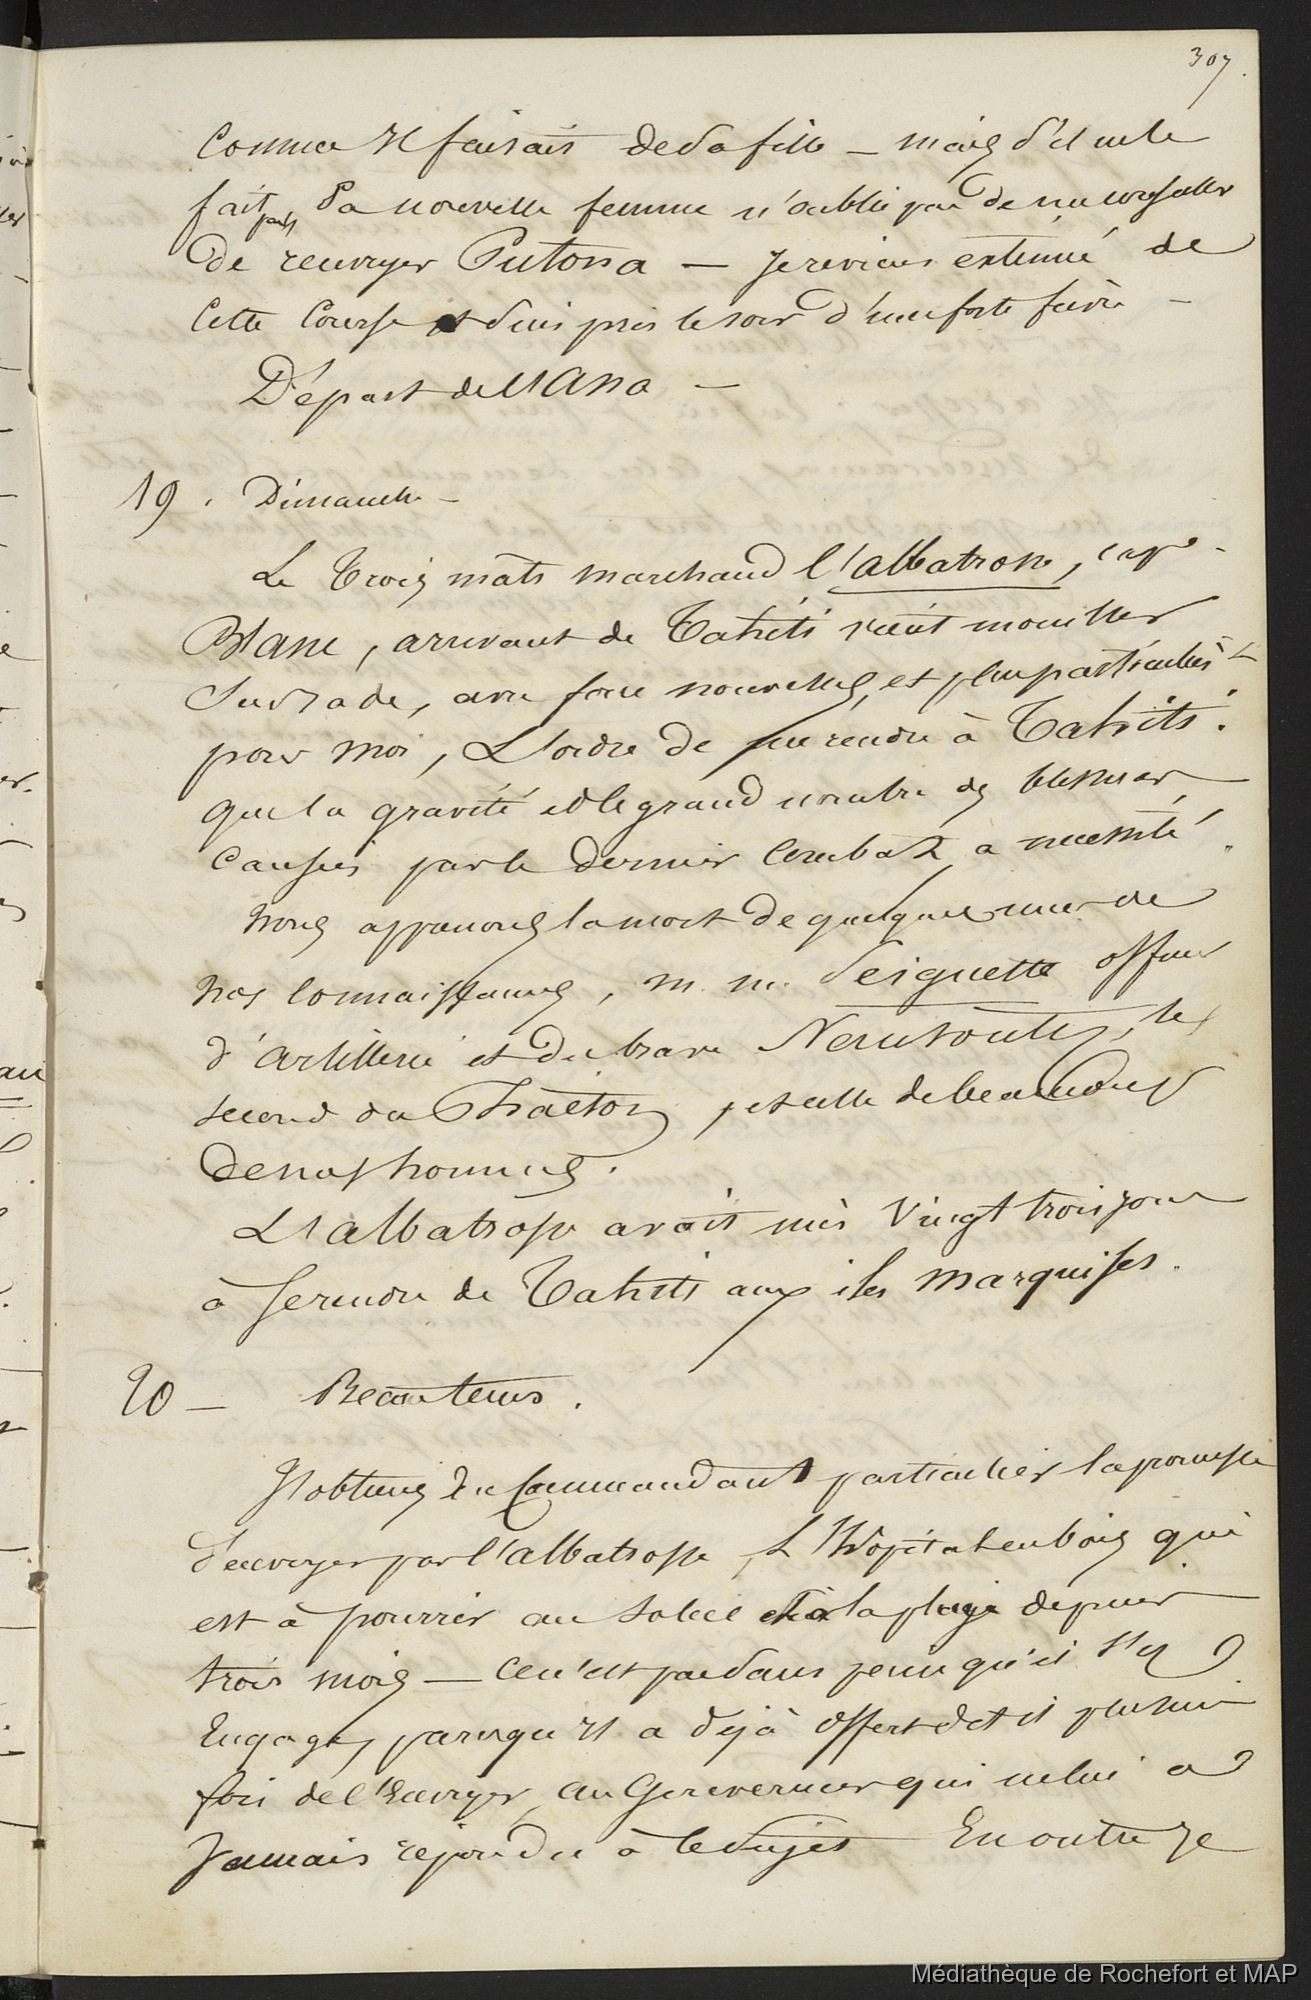 307.
Comme il faisait de sa fille — mais s'il ne le
fait pas, sa nouvelle femme n'oublie pas de me conseiller
de renvoyer Putona — je reviens exténué de
cette course et suis pris le soir d'une forte fièvre —
Départ de l'Ana —
19. Dimanche —
Le trois mâts marchand l'albatross, cap^e
Blanc, arrivant de Tahiti vient mouiller
sur rade, avec force nouvelles, et plus particulièr^t
pour moi, l'ordre de me rendre à Tahiti.
que la gravité et le grand nombre des blessures
causées par le dernier combat, a nécessité.
Nous apprenons la mort de quelques unes de
nos connaissances, m. m. Seignette officier
d'artillerie et du brave le
second du Phaéton, et celle de beaucoup
de nos hommes.
L'albatross avait mis vingt trois jours
à se rendre de Tahiti aux iles Marquises.
20 — Beau tems.
J'obtiens du Commandant particulier la promesse
d'envoyer par l'albatross, l'hôpital en bois qui
est à pourrir au soleil et à la plage depuis
trois mois — ce n'est pas sans peine qu'il s'y
engage, parcequ'il a déjà offert dit il plusieurs
fois de l'envoyer au Gouverneur qui ne lui a
jamais répondu à ce sujet En outre je
Médiathèque de Rochefort et MAP